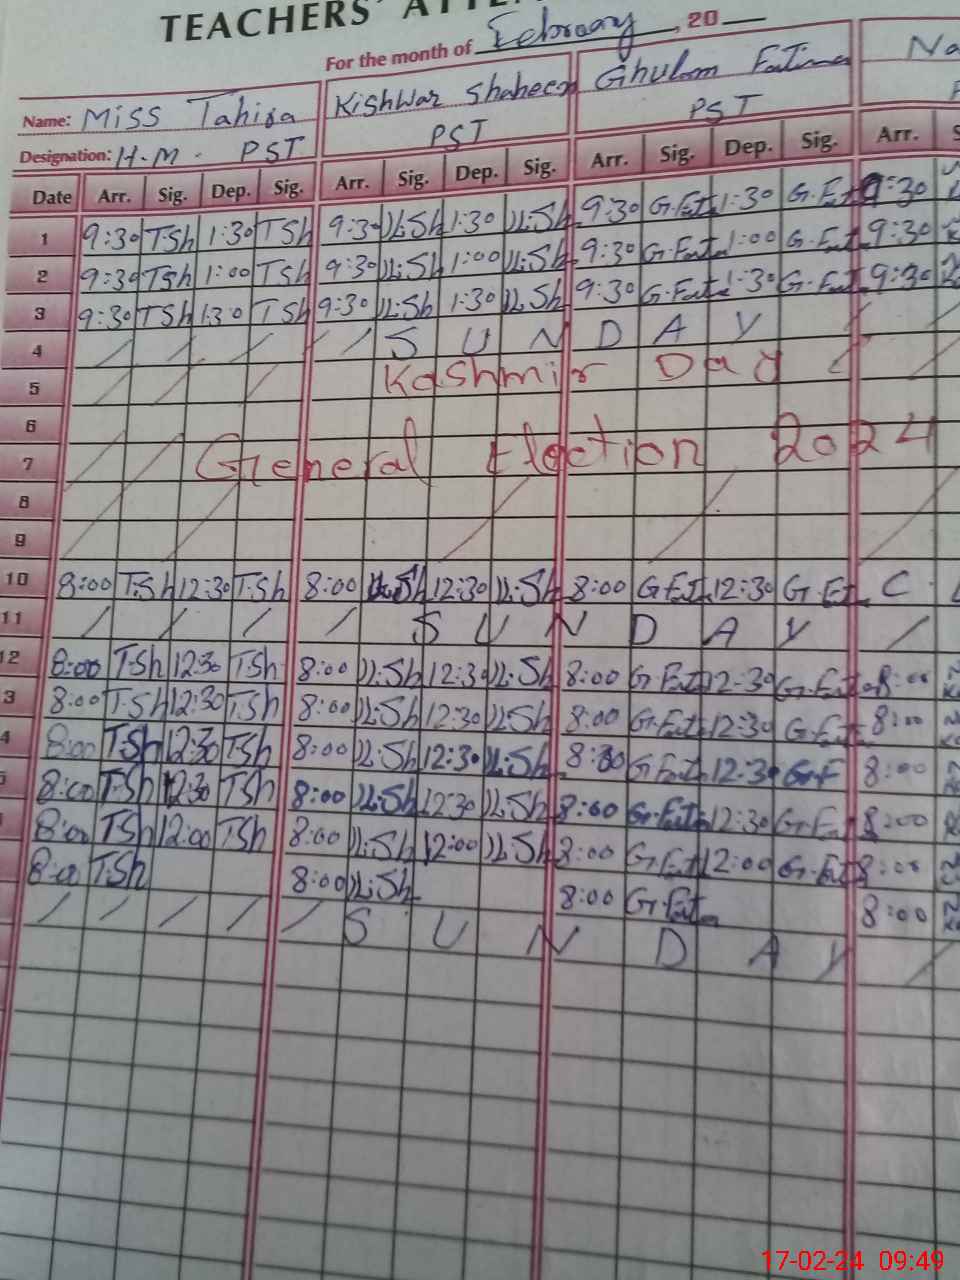 TEACHERS' ATTE
For the month of February, 20
Name: Miss Tahira Kishwar Shaheen Ghulam Fatima Na
Designation: H.M. PST PST PST
Date Arr. Sig. Dep. Sig. Arr. Sig. Dep. Sig. Arr. Sig. Dep. Sig. Arr. S
1 9:30 TSh 1:30 TSh 9:30 K.Sh 1:30 K.Sh 9:30 G.Fat 1:30 G.Fat 9:30
2 9:30 TSh 1:00 TSh 9:30 K.Sh 1:00 K.Sh 9:30 G.Fat 1:00 G.Fat 9:30
3 9:30 TSh 1:30 TSh 9:30 K.Sh 1:30 K.Sh 9:30 G.Fat 1:30 G.Fat 9:30
4 / / / / S U N D A Y / /
5 / / / Kashmir Day / /
6
7 General Election 2024
8
9
10 8:00 T.Sh 12:30 T.Sh 8:00 K.Sh 12:30 K.Sh 8:00 G.Fat 12:30 G.Fat C.
11 / / / / S U N D A Y /
12 8:00 T.Sh 12:30 T.Sh 8:00 K.Sh 12:30 K.Sh 8:00 G.Fat 12:30 G.Fat 8:00
3 8:00 T.Sh 12:30 TSh 8:00 K.Sh 12:30 K.Sh 8:00 G.Fat 12:30 G.Fat 8:00
4 8:00 TSh 12:30 TSh 8:00 K.Sh 12:30 K.Sh 8:00 G.Fat 12:30 G.F 8:00
8:00 T.Sh 12:30 TSh 8:00 K.Sh 12:30 K.Sh 8:00 G.Fat 12:30 G.Fat 8:00
8:00 TSh 12:00 TSh 8:00 K.Sh 12:00 K.Sh 8:00 G.Fat 12:00 G.Fat 8:00
8:00 TSh 8:00 K.Sh 8:00 G.Fat 8:00
/ / / / / S U N D A Y /
17-02-24 09:49